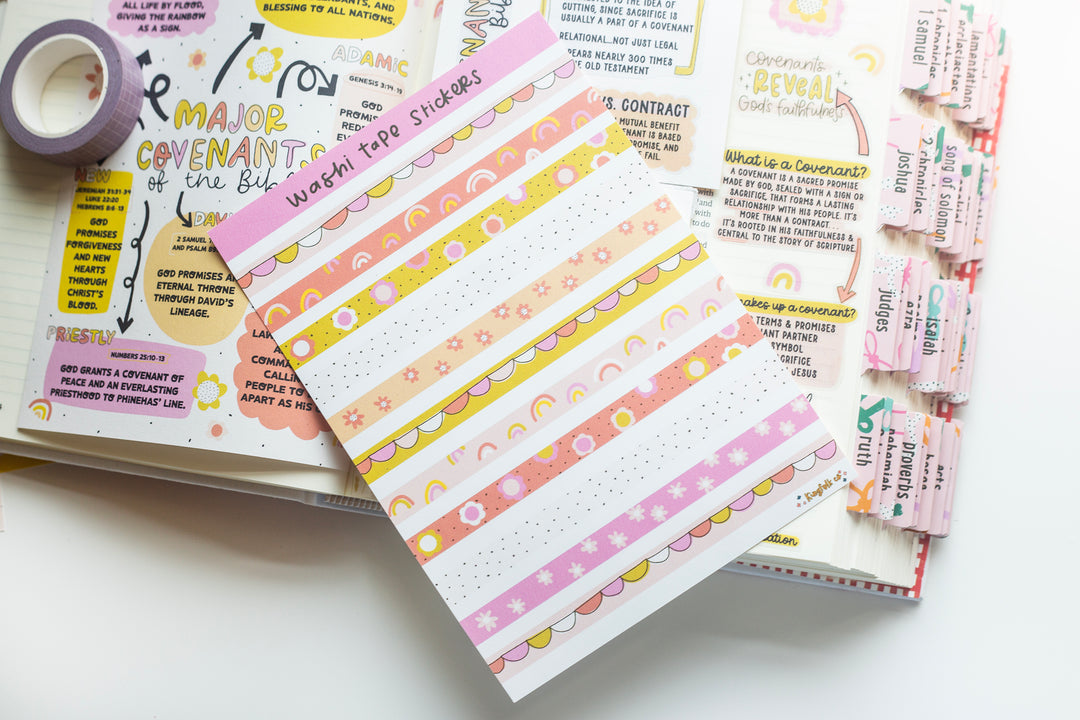 ALL LIFE BY FLOOD,
GIVING THE RAINBOW
AS A SIGN.
BLESSING TO ALL NATIONS.
ADAMIC
GENESIS 3:14-19
GOD
MAJOR
COVENANTS
of the
NEW
JEREMIAH 31:31-34
LUKE 22:20
HEBREWS 8:6-13
GOD
PROMISES
FORGIVENESS
AND NEW
HEARTS
THROUGH
CHRIST'S
BLOOD.
2 SAMUEL
AND PSALM
GOD PROMISES AN
ETERNAL THRONE
THROUGH DAVID'S
LINEAGE.
PRIESTLY
NUMBERS 25:10-13
GOD GRANTS A COVENANT OF
PEACE AND AN EVERLASTING
PRIESTHOOD TO PHINEHAS' LINE.
PEOPLE TO
APART AS HIS
washi tape stickers
Kingfolk co
TO THE IDEA OF
CUTTING, SINCE SACRIFICE IS
USUALLY A PART OF A COVENANT
RELATIONAL...NOT JUST LEGAL
NEARLY 300 TIMES
OLD TESTAMENT
VS. CONTRACT
MUTUAL BENEFIT
IS BASED
PROMISE, AND
FAIL.
covenants
REVEAL
God's faithfulness
What is a Covenant?
A COVENANT IS A SACRED PROMISE
MADE BY GOD, SEALED WITH A SIGN OR
SACRIFICE, THAT FORMS A LASTING
RELATIONSHIP WITH HIS PEOPLE. IT'S
MORE THAN A CONTRACT...
IT'S ROOTED IN HIS FAITHFULNESS &
CENTRAL TO THE STORY OF SCRIPTURE.
makes up a covenant?
TERMS & PROMISES
PARTNER
SYMBOL
JESUS
1 samuel
2 chronicles
ecclesiastes
lamentations
joshua
2 chronicles
song of solomon
judges
ezra
isaiah
ruth
nehemiah
proverbs
hosea
acts